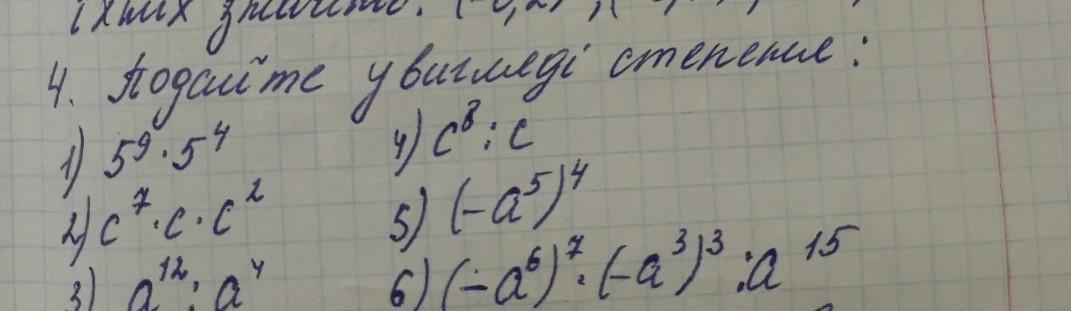 їхніх значень:
4. Подайте у вигляді степеня:
1) 5⁹ · 5⁴
4) c⁸ : c
2) c⁷ · c · c²
5) (-a⁵)⁴
3) a¹² : a⁴
6) (-a⁶)⁷ · (-a³)³ : a¹⁵